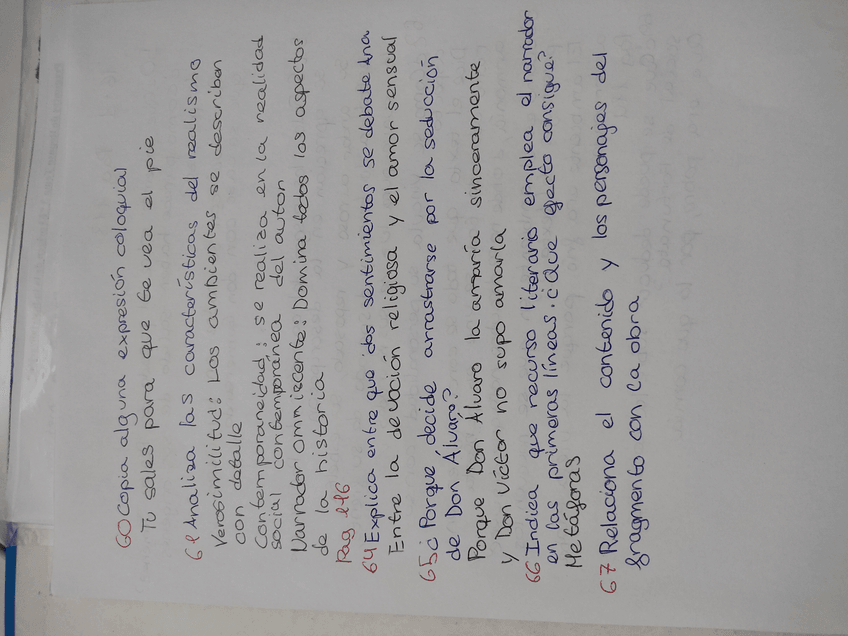 60 Copia alguna expresión coloquial
Tu sales para que te vea el pie
61 Analiza las características del realismo
Verosimilitud: Los ambientes se describen
con detalle
Contemporaneidad: se realiza en la realidad
social contemporánea del autor
Narrador omniscente: Domina todos los aspectos
de la historia
Pag 116
64 Explica entre que dos sentimientos se debate Ana
Entre la devoción religiosa y el amor sensual
65 ¿Porqué decide arrastrarse por la seducción
de Don Álvaro?
Porque Don Álvaro la amaría sinceramente
y Don Víctor no supo amarla
66 Indica que recurso literario emplea el narrador
en las primeras líneas. ¿Que efecto consigue?
Metáforas
67 Relaciona el contenido y los personajes del
fragmento con la obra